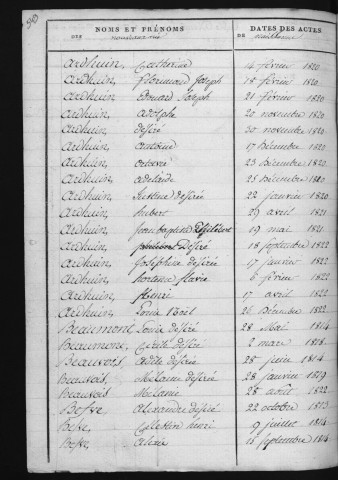 NOMS ET PRÉNOMS
DES
DATES DES ACTES
DE naissance
Ardhuin, Catherine 14 février 1820
Ardhuin, florimond Joseph 18 février 1820
Ardhuin, Edouard Joseph 21 février 1820
Ardhuin, adolphe 20 novembre 1820
Ardhuin, désiré 30 novembre 1820
Ardhuin, antoine 17 Décembre 1820
Ardhuin, 25 Décembre 1820
Ardhuin, adélaïde 25 Décembre 1820
Ardhuin, Justine désirée 22 janvier 1820
Ardhuin, hubert 29 avril 1821
Ardhuin, Jean baptiste 19 mai 1821
Ardhuin, philibert Désiré 18 septembre 1822
Ardhuin, Joséphine désirée 17 janvier 1822
Ardhuin, hortense flavie 6 février 1822
Ardhuin, henri 17 avril 1822
Ardhuin, Louis Noël 26 Décembre 1822
Beaumont, Louis désiré 28 Mai 1814
Beaumont, désiré 2 mars 1818
Beauvois, désirée 28 juin 1814
Beauvois, Mélanie désirée 28 janvier 1819
Beauvois, Mélanie 28 août 1822
Besse, Alexandre désiré 22 octobre 1813
Besse, Célestin henri 9 juillet 1814
Besse, alexis 18 septembre 1814